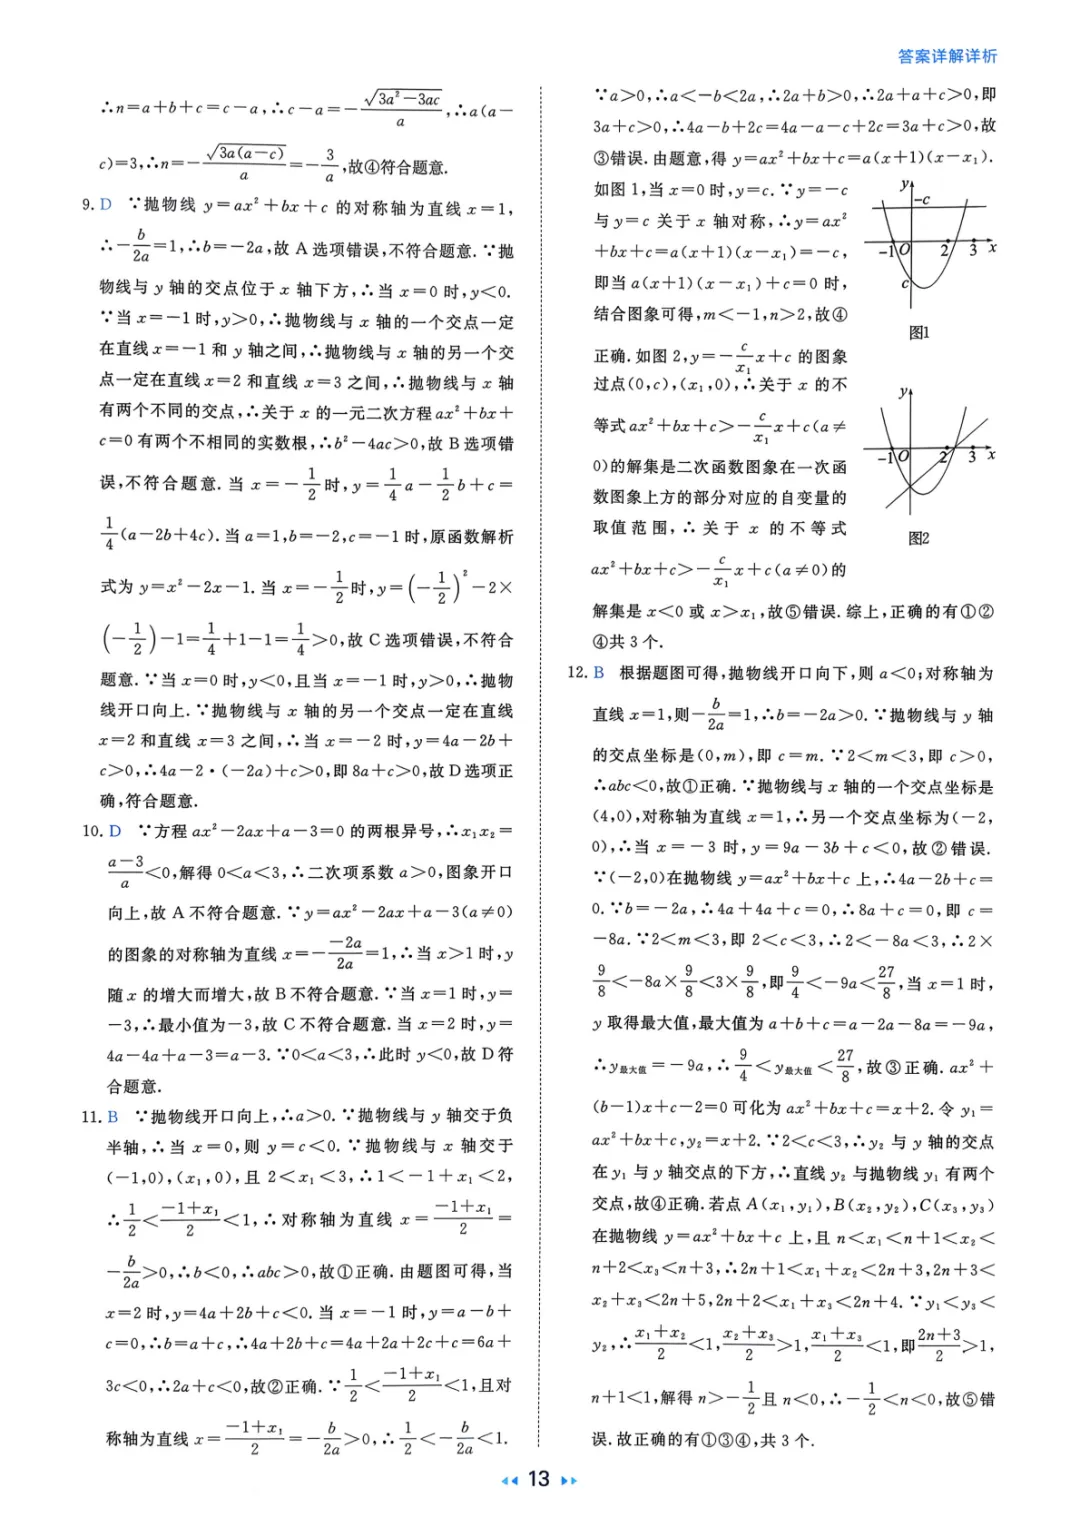 答案详解详析
∴n=a+b+c=c-a,∴c-a=-\frac{\sqrt{3a²-3ac}}{a},∴a(a-
c)=3,∴n=-\frac{\sqrt{3a(a-c)}}{a}=-\frac{3}{a},故④符合题意.
9. D ∵抛物线 y=ax²+bx+c 的对称轴为直线 x=1,
∴-\frac{b}{2a}=1,∴b=-2a,故 A 选项错误,不符合题意.∵抛
物线与 y 轴的交点位于 x 轴下方,∴当 x=0 时,y<0.
∵当 x=-1 时,y>0,∴抛物线与 x 轴的一个交点一定
在直线 x=-1 和 y 轴之间,∴抛物线与 x 轴的另一个交
点一定在直线 x=2 和直线 x=3 之间,∴抛物线与 x 轴
有两个不同的交点,∴关于 x 的一元二次方程 ax²+bx+
c=0 有两个不相同的实数根,∴b²-4ac>0,故 B 选项错
误,不符合题意. 当 x=-\frac{1}{2}时,y=\frac{1}{4}a-\frac{1}{2}b+c=
\frac{1}{4}(a-2b+4c).当 a=1,b=-2,c=-1 时,原函数解析
式为 y=x²-2x-1. 当 x=-\frac{1}{2}时,y=(-\frac{1}{2})²-2×
(-\frac{1}{2})-1=\frac{1}{4}+1-1=\frac{1}{4}>0,故 C 选项错误,不符合
题意.∵当 x=0 时,y<0,且当 x=-1 时,y>0,∴抛物
线开口向上.∵抛物线与 x 轴的另一个交点一定在直线
x=2 和直线 x=3 之间,∴当 x=-2 时,y=4a-2b+
c>0,∴4a-2·(-2a)+c>0,即 8a+c>0,故 D 选项正
确,符合题意.
10. D ∵方程 ax²-2ax+a-3=0 的两根异号,∴x₁x₂=
\frac{a-3}{a}<0,解得 0<a<3,∴二次项系数 a>0,图象开口
向上,故 A 不符合题意.∵y=ax²-2ax+a-3(a≠0)
的图象的对称轴为直线 x=-\frac{-2a}{2a}=1,∴当 x>1 时,y
随 x 的增大而增大,故 B 不符合题意.∵当 x=1 时,y=
-3,∴最小值为-3,故 C 不符合题意.当 x=2 时,y=
4a-4a+a-3=a-3.∵0<a<3,∴此时 y<0,故 D 符
合题意.
11. B ∵抛物线开口向上,∴a>0.∵抛物线与 y 轴交于负
半轴,∴当 x=0,则 y=c<0.∵抛物线与 x 轴交于
(-1,0),(x₁,0),且 2<x₁<3,∴1<-1+x₁<2,
∴\frac{1}{2}<\frac{-1+x₁}{2}<1,∴对称轴为直线 x=\frac{-1+x₁}{2}=
-\frac{b}{2a}>0,∴b<0,∴abc>0,故①正确.由题图可得,当
x=2 时,y=4a+2b+c<0.当 x=-1 时,y=a-b+
c=0,∴b=a+c,∴4a+2b+c=4a+2a+2c+c=6a+
3c<0,∴2a+c<0,故②正确.∵\frac{1}{2}<\frac{-1+x₁}{2}<1,且对
称轴为直线 x=\frac{-1+x₁}{2}=-\frac{b}{2a}>0,∴\frac{1}{2}<-\frac{b}{2a}<1.
∵a>0,∴a<-b<2a,∴2a+b>0,∴2a+a+c>0,即
3a+c>0,∴4a-b+2c=4a-a-c+2c=3a+c>0,故
③错误.由题意,得 y=ax²+bx+c=a(x+1)(x-x₁).
如图 1,当 x=0 时,y=c.∵y=-c
与 y=c 关于 x 轴对称,∴y=ax²
+bx+c=a(x+1)(x-x₁)=-c,
即当 a(x+1)(x-x₁)+c=0 时,
结合图象可得,m<-1,n>2,故④
正确.如图 2,y=-\frac{c}{x₁}x+c 的图象
过点(0,c),(x₁,0),∴关于 x 的不
等式 ax²+bx+c>-\frac{c}{x₁}x+c(a≠
0)的解集是二次函数图象在一次函
数图象上方的部分对应的自变量的
取值范围,∴关于 x 的不等式
ax²+bx+c>-\frac{c}{x₁}x+c(a≠0)的
解集是 x<0 或 x>x₁,故⑤错误.综上,正确的有①②
④共 3 个.
y
-c
-1 O 2 3 x
c
图1
y
-1 O 2 3 x
图2
12. B 根据题图可得,抛物线开口向下,则 a<0;对称轴为
直线 x=1,则-\frac{b}{2a}=1,∴b=-2a>0.∵抛物线与 y 轴
的交点坐标是(0,m),即 c=m.∵2<m<3,即 c>0,
∴abc<0,故①正确.∵抛物线与 x 轴的一个交点坐标是
(4,0),对称轴为直线 x=1,∴另一个交点坐标为(-2,
0),∴当 x=-3 时,y=9a-3b+c<0,故②错误.
∵(-2,0)在抛物线 y=ax²+bx+c 上,∴4a-2b+c=
0.∵b=-2a,∴4a+4a+c=0,∴8a+c=0,即 c=
-8a.∵2<m<3,即 2<c<3,∴2<-8a<3,∴2×
\frac{9}{8}<-8a×\frac{9}{8}<3×\frac{9}{8},即\frac{9}{4}<-9a<\frac{27}{8},当 x=1 时,
y 取得最大值,最大值为 a+b+c=a-2a-8a=-9a,
∴y最大值=-9a,∴\frac{9}{4}<y最大值<\frac{27}{8},故③正确. ax²+
(b-1)x+c-2=0 可化为 ax²+bx+c=x+2.令 y₁=
ax²+bx+c,y₂=x+2.∵2<c<3,∴y₂ 与 y 轴的交点
在 y₁ 与 y 轴交点的下方,∴直线 y₂ 与抛物线 y₁ 有两个
交点,故④正确.若点 A(x₁,y₁),B(x₂,y₂),C(x₃,y₃)
在抛物线 y=ax²+bx+c 上,且 n<x₁<n+1<x₂<
n+2<x₃<n+3,∴2n+1<x₁+x₂<2n+3,2n+3<
x₂+x₃<2n+5,2n+2<x₁+x₃<2n+4.∵y₁<y₃<
y₂,∴\frac{x₁+x₂}{2}<1,\frac{x₂+x₃}{2}>1,\frac{x₁+x₃}{2}<1,即\frac{2n+3}{2}>1,
n+1<1,解得 n>-\frac{1}{2}且 n<0,∴-\frac{1}{2}<n<0,故⑤错
误.故正确的有①③④,共 3 个.
13